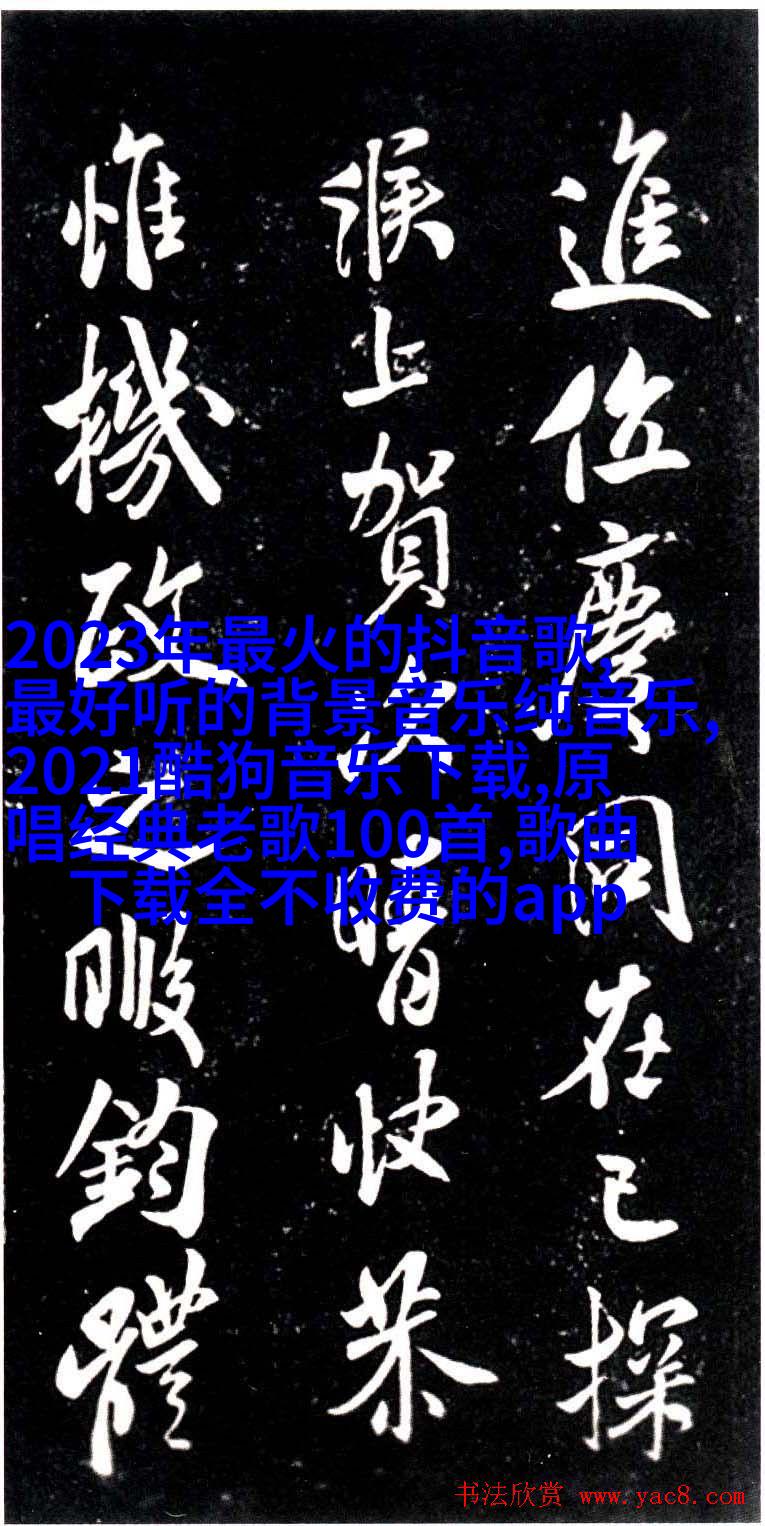 進位慶同在已探
候上賀次晴快恭
惟機政之暇鈞體
2023年最火的抖音歌,
最好听的背景音乐纯音乐,
2021酷狗音乐下载,原
唱经典老歌100首,歌曲
下载全不收费的app
书法欣赏 www.yac8.com